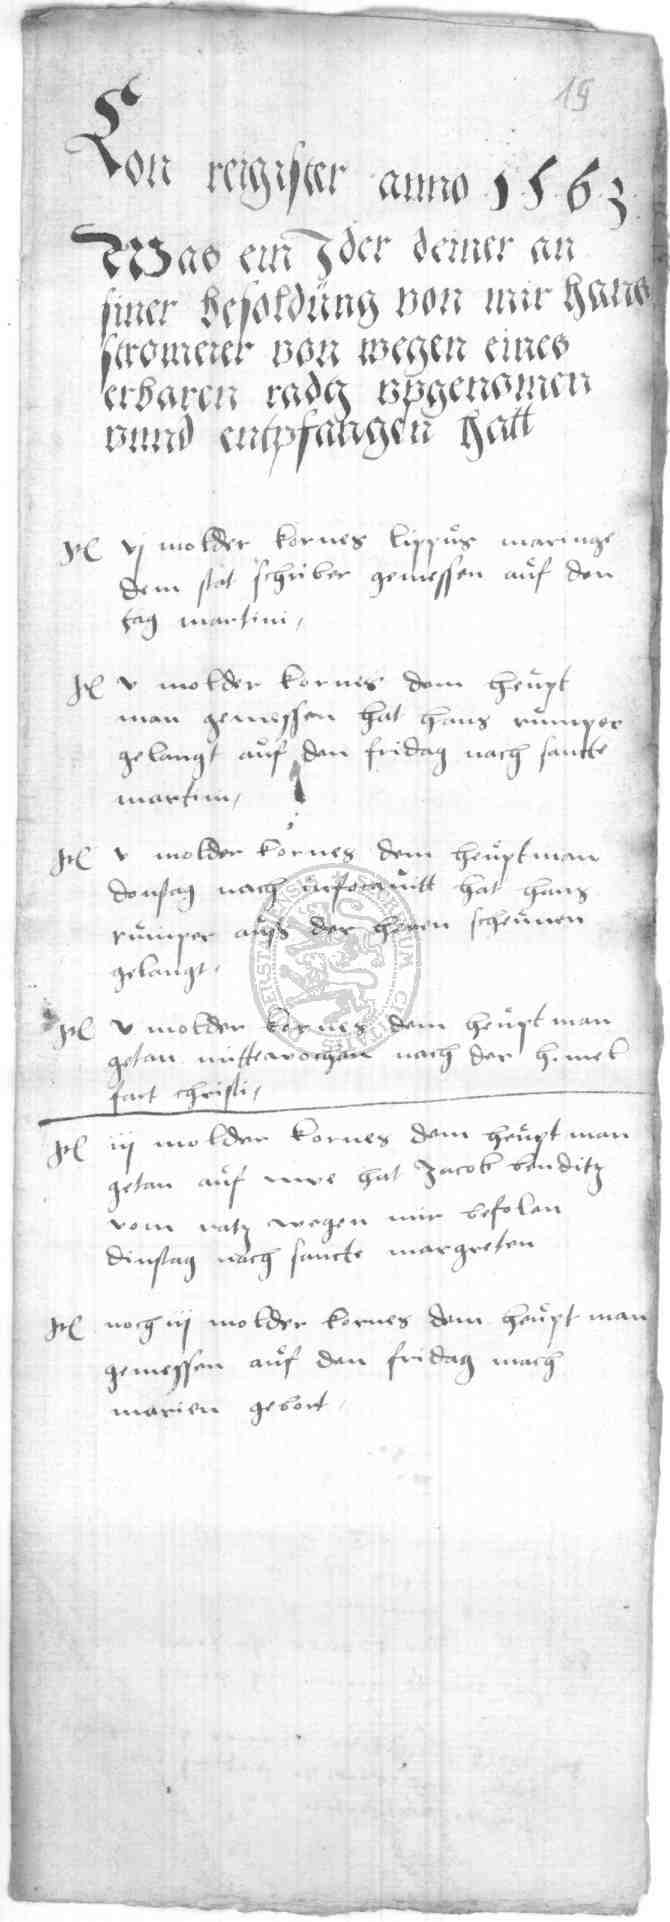 19
Lon reigister anno 1563
Was ein Jder deiner an
siner besoldüng von mir hans
stromeier von wegen eines
erbaren radz vpgenomen
vnnd entpfangen hatt
vj molder kornes lippus maringe
dem stat schriber gemessen auf den
tag martini
v molder kornes dem heupt
man gemessen hat hans rumper
gelangt auf den fridag nach sancte
martini
v molder kornes dem heuptman
donstag nach infocauitt hat hans
rumper auss der heren scheunen
gelangt
v molder kornes dem heuptman
getan mittewochen nach der himel
fart christi
iij molder kornes dem heuptman
getan auf hat Jacob benditz
vom ratz wegen mir befolen
dinstag nach sancte margreten
noch iij molder kornes dem heupt man
gemessen auf den fridag nach
marien gebort